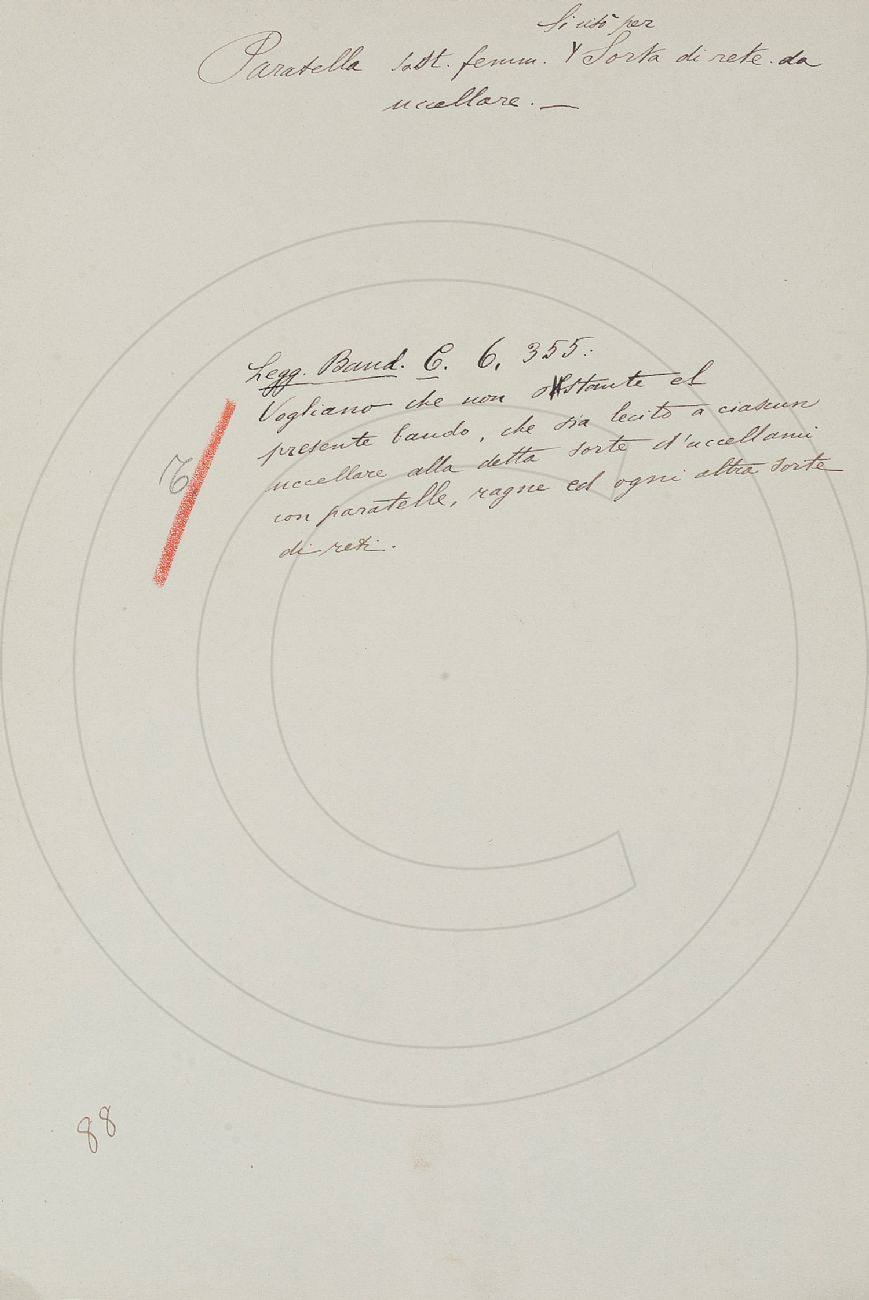 Si usò per
Paratella sost. femm. Sorta di rete da
uccellare. —
Legg. Band. C. 6. 355:
Vogliano che non ostante el
presente bando, che sia lecito a ciascun
uccellare alla detta sorte d'uccellami
con paratelle, ragne ed ogni altra sorte
di reti.
88